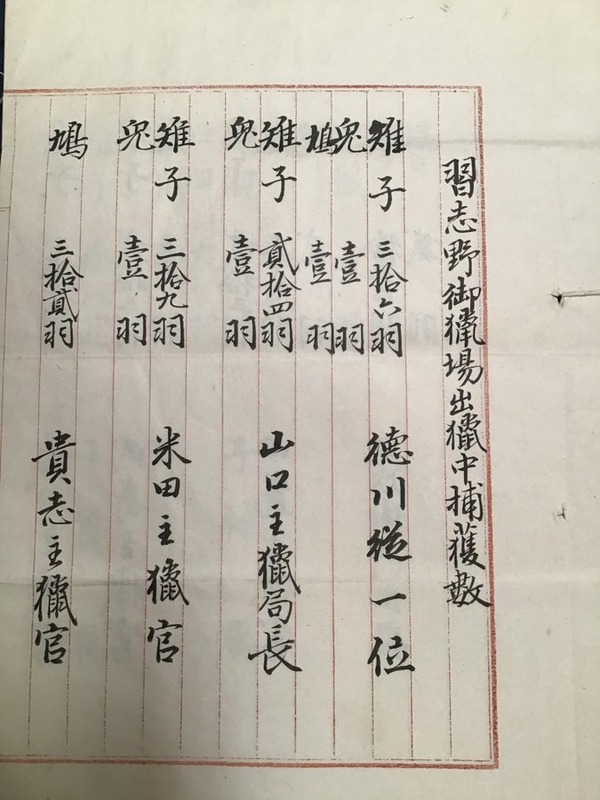 習志野御獵場出獵中捕獲數
雉子 三拾六羽 德川從一位
兎 壹羽
鳩 壹羽
雉子 貳拾四羽 山口主獵局長
兎 壹羽
雉子 三拾九羽 米田主獵官
兎 壹羽
鳩 三拾貳羽 貴志主獵官